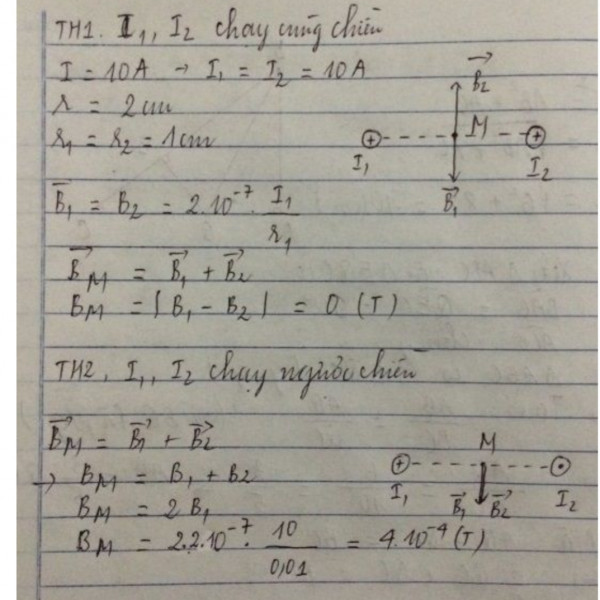 TH1. I₁, I₂ chạy cùng chiều
I = 10A → I₁ = I₂ = 10A
r = 2cm
r₁ = r₂ = 1cm
B⃗₂
M
I₁
I₂
B⃗₁
B⃗₁ = B₂ = 2.10⁻⁷. I₁/r₁
B⃗M = B⃗₁ + B⃗₂
BM = |B₁ - B₂| = 0 (T)
TH2. I₁, I₂ chạy ngược chiều
B⃗M = B⃗₁ + B⃗₂
→ BM = B₁ + B₂
BM = 2B₁
BM = 2.2.10⁻⁷. 10/0,01 = 4.10⁻⁴ (T)
M
I₁
B⃗₁ B⃗₂
I₂